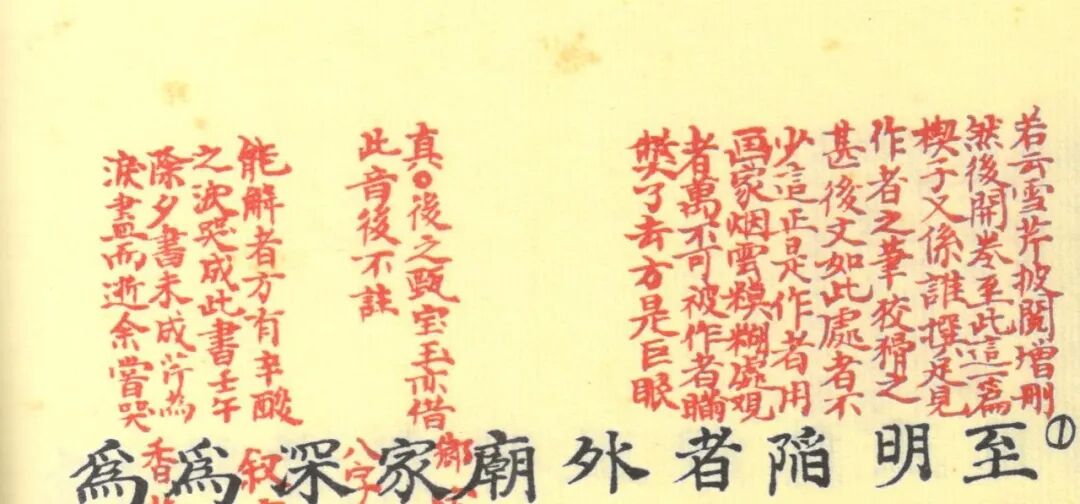 若云雪芹披閱增刪
然後開卷至此這一為
楔子又係誰撰足見
作者之筆狡猾之
甚後文如此處者不
少這正是作者用
画家烟雲糢糊處观
者萬不可被作者瞞
獘了去方是巨眼
真。後之甄宝玉亦借
此音後不註
能解者方有辛酸
之淚哭成此書壬午
除夕書未成芹為
淚盡而逝余嘗哭
①
至
明
陷
者
外
廟
鄉
家
八字
深
叙
爲
香
爲